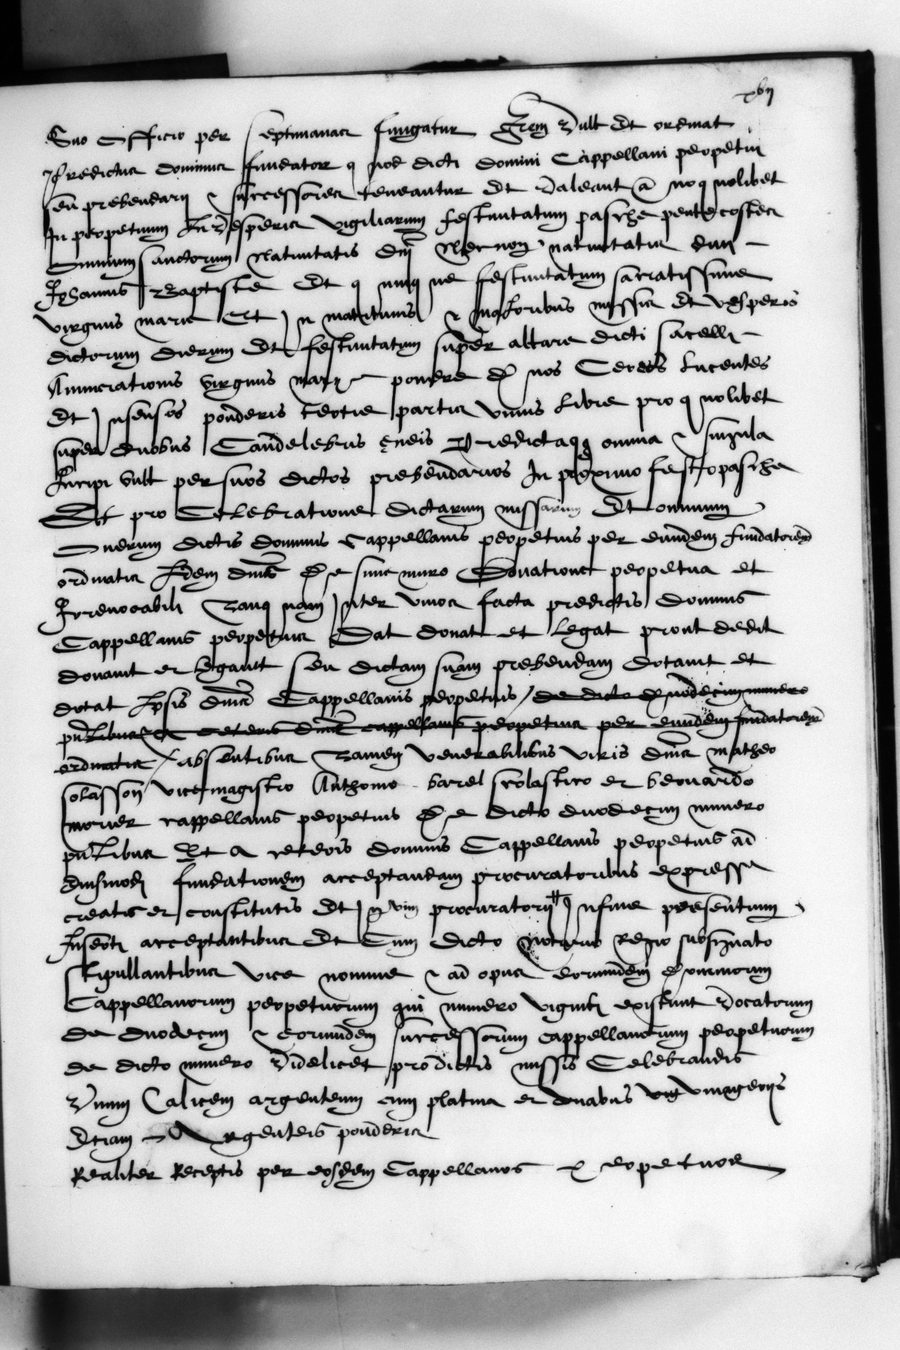 xvij
Suo officio per septimanas fungatur Item vult et ordinat
predictus dominus fundator quod dicti domini Cappellani perpetui
seu prebendarij & successores teneantur et valeant a quolibet
In perpetuum In vesperis vigiliarum festivitatum pasche penthecostes
omnium sanctorum Nativitatis dni Nec non nativitatis divi
Johannis Baptiste Et quinque festivitatum sacratissime
virginis marie Et In matutinis & maioribus missis et vesperis
dictorum dierum Et festivitatum super altare dicti sacelli
Annunciationis virginis marie ponere duos Cereos lucentes
Et Incensos ponderis tertie partis unius libre pro quolibet
super duobus Candelebris eneis Predictaque omnia & singula
Incipi vult per suos dictos prebendarios In proximo festo pasche
Et pro Celebratione dictarum missarum Et omnium
onerum dictis dominis Cappellanis perpetuis per eundem fundatorem
ordinatis Idem dns de sue mero Donatione perpetua et
Irrevocabili Tanquam Inter vivos facta predictis dominis
Cappellanis perpetuis Dat donat et legat prout dedit
donavit et legavit seu dictam suam prebendam Dotavit et
dotat Ipsis dnis Cappellanis perpetuis / de dicto duodecim numero
pntibus & ceteris dnis cappellanis perpetuis per eundem fundatorem
ordinatis / absentibus Tamen venerabilibus viris dnis matheo
solasson vicemagistro Anthonio barel scolastico et bernardo
morier cappellanis perpetuis de dicto duodecim numero
pntibus Et a ceteris dominis Cappellanis perpetuis ad
huiusmodi fundationem acceptandam procuratoribus expresse
creatis et constitutis Et vim procuratorij In fine presentium
Inserti acceptantibus Et Cum dicto Notario Regio subsignato
stipullantibus vice nomine & ad opus eorumdem et omnium
Cappellanorum perpetuorum qui numero viginti existunt vocatorum
de duodecim & eorumdem successorum cappellanorum perpetuorum
de dicto numero videlicet pro dictis missis Celebrandis
Unum Calicem argenteum cum platina et duabus vinageriis
Etiam Argenteis ponderis
Realiter Receptis per eosdem Cappellanos perpetuos